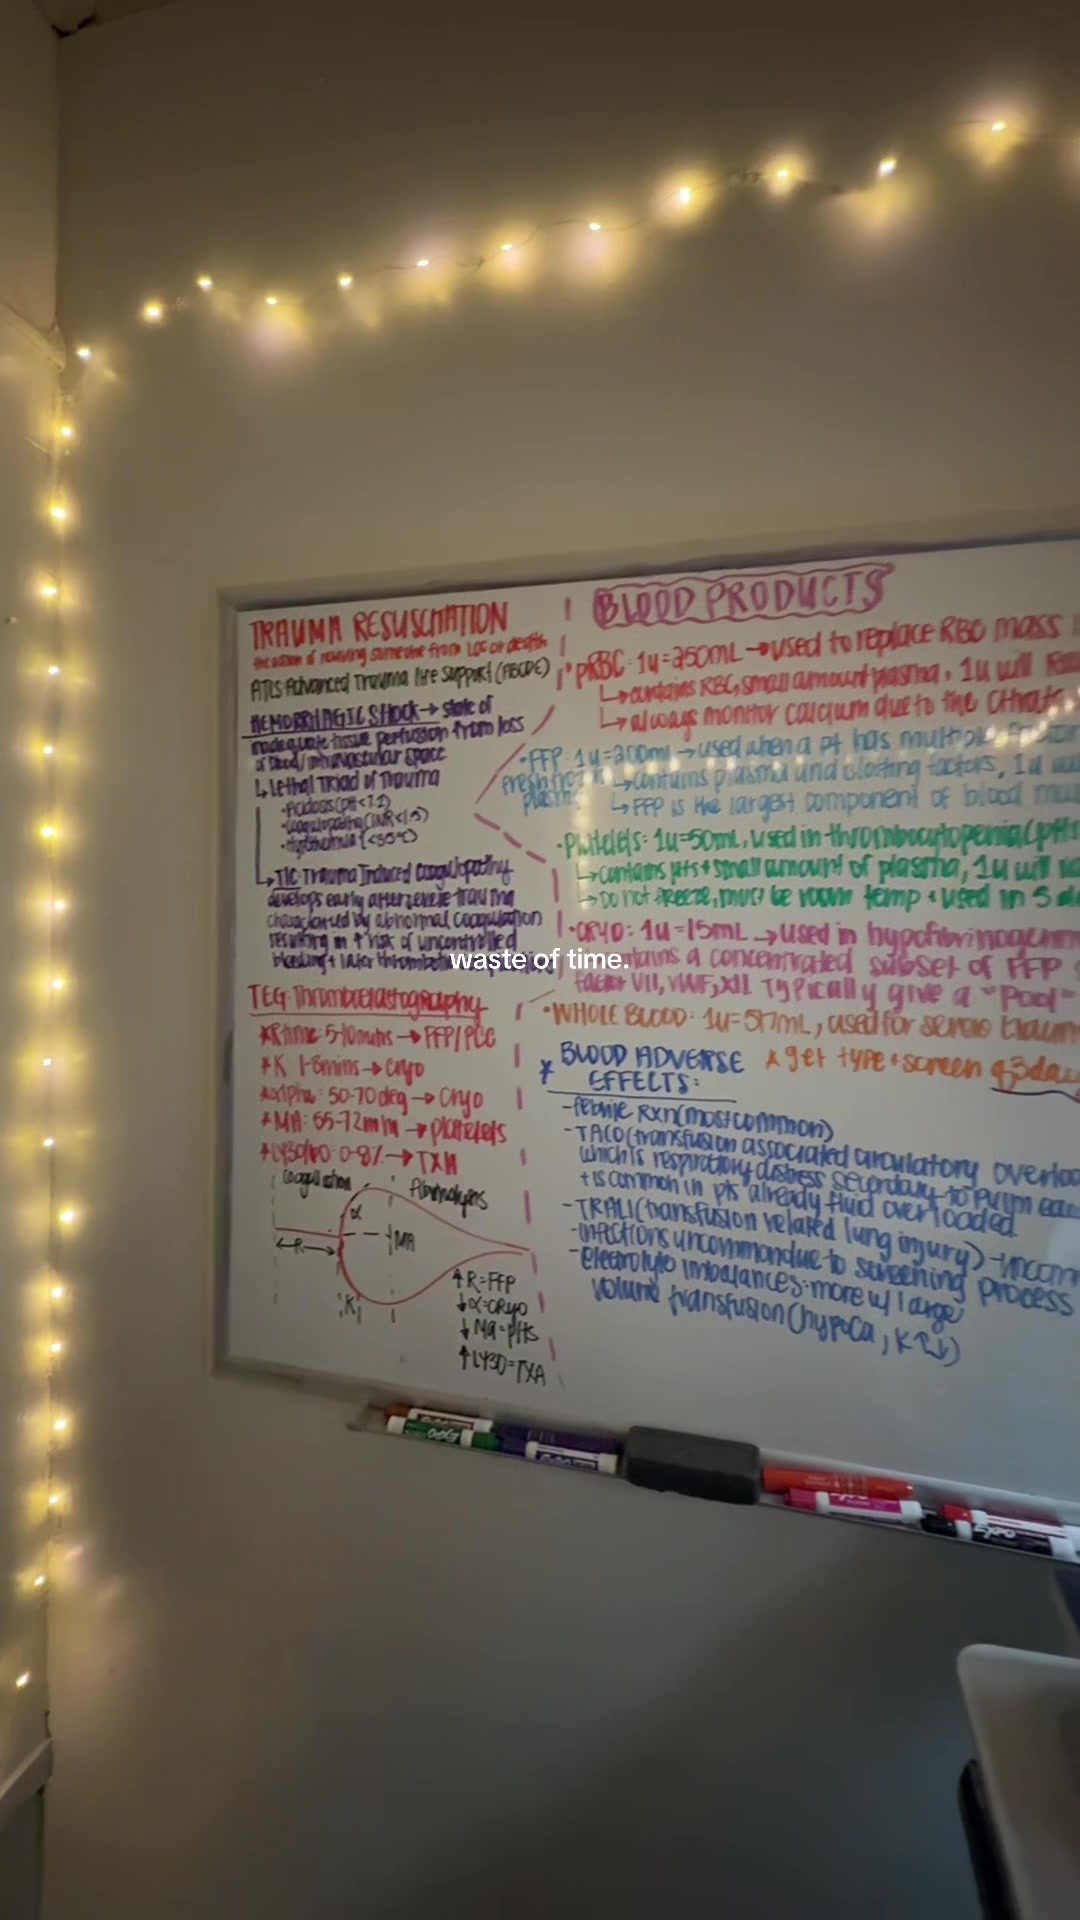 TRAUMA RESUSCITATION
the action of reviving someone from LOC or death
ATLS-Advanced Trauma life support (ABCDE)
HEMORRHAGIC SHOCK → state of
inadequate tissue perfusion from loss
of blood/intravascular space
↳ Lethal Triad of Trauma
·Acidosis (pH<7.2)
·Coagulopathy (INR<1.5)
·Hypothermia (<35°C)
↳TIC-Trauma Induced Coagulopathy
develops early after severe trauma
characterized by abnormal coagulation
resulting in ↑ risk of uncontrolled
bleeding + later
waste of time.
TEG-Thromboelastography
*R time: 5-10mins → FFP/PCC
*K 1-3mins → cryo
*alpha: 50-70deg → cryo
*MA: 55-72mm → platelets
*LY30: 0-8% → TXA
Coagulation
Fibrinolysis
α
R
MA
K
↑R=FFP
↓α=cryo
↓Ma=plts
↑LY30=TXA
BLOOD PRODUCTS
·pRBC: 1u=250mL → used to replace RBC mass
↳ contains RBC, small amount plasma, 1u will
↳ always monitor calcium due to the citrate
·FFP: 1u=200ml → used when a pt has multiple
fresh frozen plasma
↳ contains plasma and clotting factors, 1u
↳ FFP is the largest component of blood
·Platelets: 1u=50mL, used in thrombocytopenia (plts
↳ contains plts + small amount of plasma, 1u will
↳ Do not freeze, must be room temp + used in 5
·CRYO: 1u=15mL → used in
contains a concentrated subset of FFP
factor VII, VWF, XII. Typically give a "Pool"
·WHOLE BLOOD: 1u=517mL, used for severe
* BLOOD ADVERSE EFFECTS:
*get type + screen q3day
-febrile rxn (most common)
-TACO (transfusion associated circulatory
which is respiratory distress secondary to pulm
+ is common in pts already fluid overloaded
-TRALI (transfusion related lung injury) →
-infections uncommon due to screening process
-electrolyte imbalances-more w/ large
volume transfusion (hypoCa, K↑↓)
EXPO
EXPO